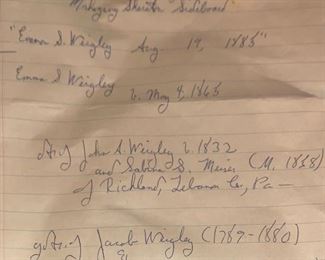 Mahogany Sheraton Sideboard"
"Emma S. Weigley Aug 19, 1885"
Emma S Weigley
b. May 4, 1865
dt of John A. Weigley b. 1832
and Sabina S. Meiser (M. 1858)
of Richland, Lebanon Co, Pa —
gdt of Jacob Weigley (1789-1880)